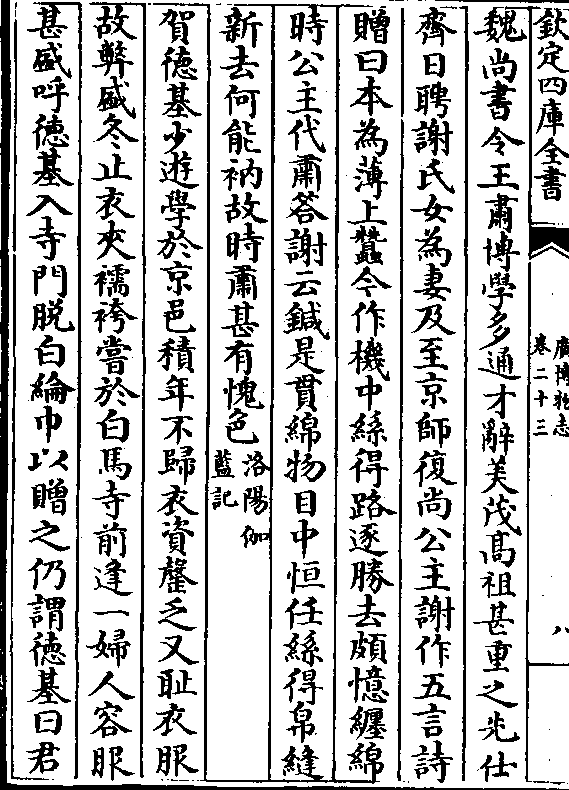 欽定四庫全書
廣博物志
卷二十三
八
魏尚書令王肅博學多通才辭美茂高祖甚重之先仕
齊日聘謝氏女為妻及至京師復尚公主謝作五言詩
贈曰本為薄上蠶今作機中絲得路逐勝去頗憶纏綿
時公主代肅答謝云鍼是貫綿物目中恒任絲得帛縫
新去何能衲故時肅甚有愧色洛陽伽
藍記
賀徳基少遊學於京邑積年不歸衣資罄乏又耻衣服
故弊盛冬止衣夾襦袴嘗於白馬寺前逢一婦人容服
甚盛呼徳基入寺門脱白綸巾以贈之仍謂徳基曰君